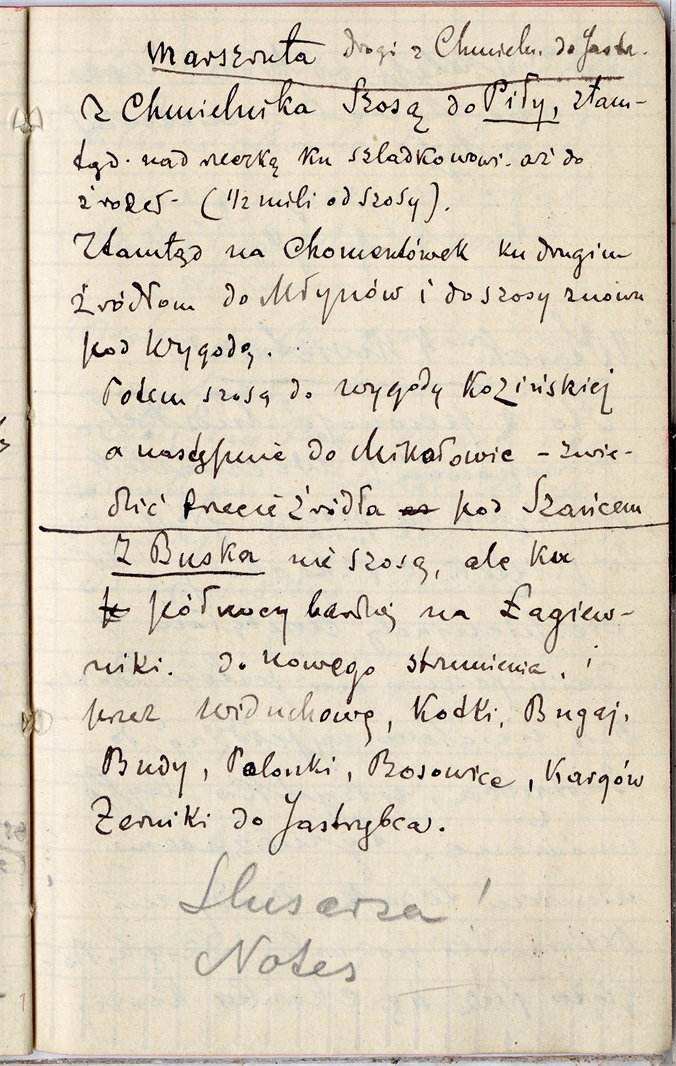 Marszruta drogi z Chmieln. do Jastr.
Z Chmielnika szosą do Piły, ztam-
tąd. nad rzeczką ku szladkowowi. aż do
źrodeł - (1/2 mili od szosy).
Ztamtąd na Chomentówek ku drugim
źródłom do Młynów i do szosy znowu
pod Wygodą.
Potem szosą do wygody Kozińskiej
a następnie do Mikołowic - zwie-
dzić trzecie źródła pod Szańcem
Z Buska nie szosą, ale ku
północy bardziej na Łagiew-
niki. do nowego strumienia, i
przez Widuchowę, Kotki, Bugaj,
Budy, Palonki, Bosowice, Kargów
Żerniki do Jastrzębca.
Slusarza!
Notes